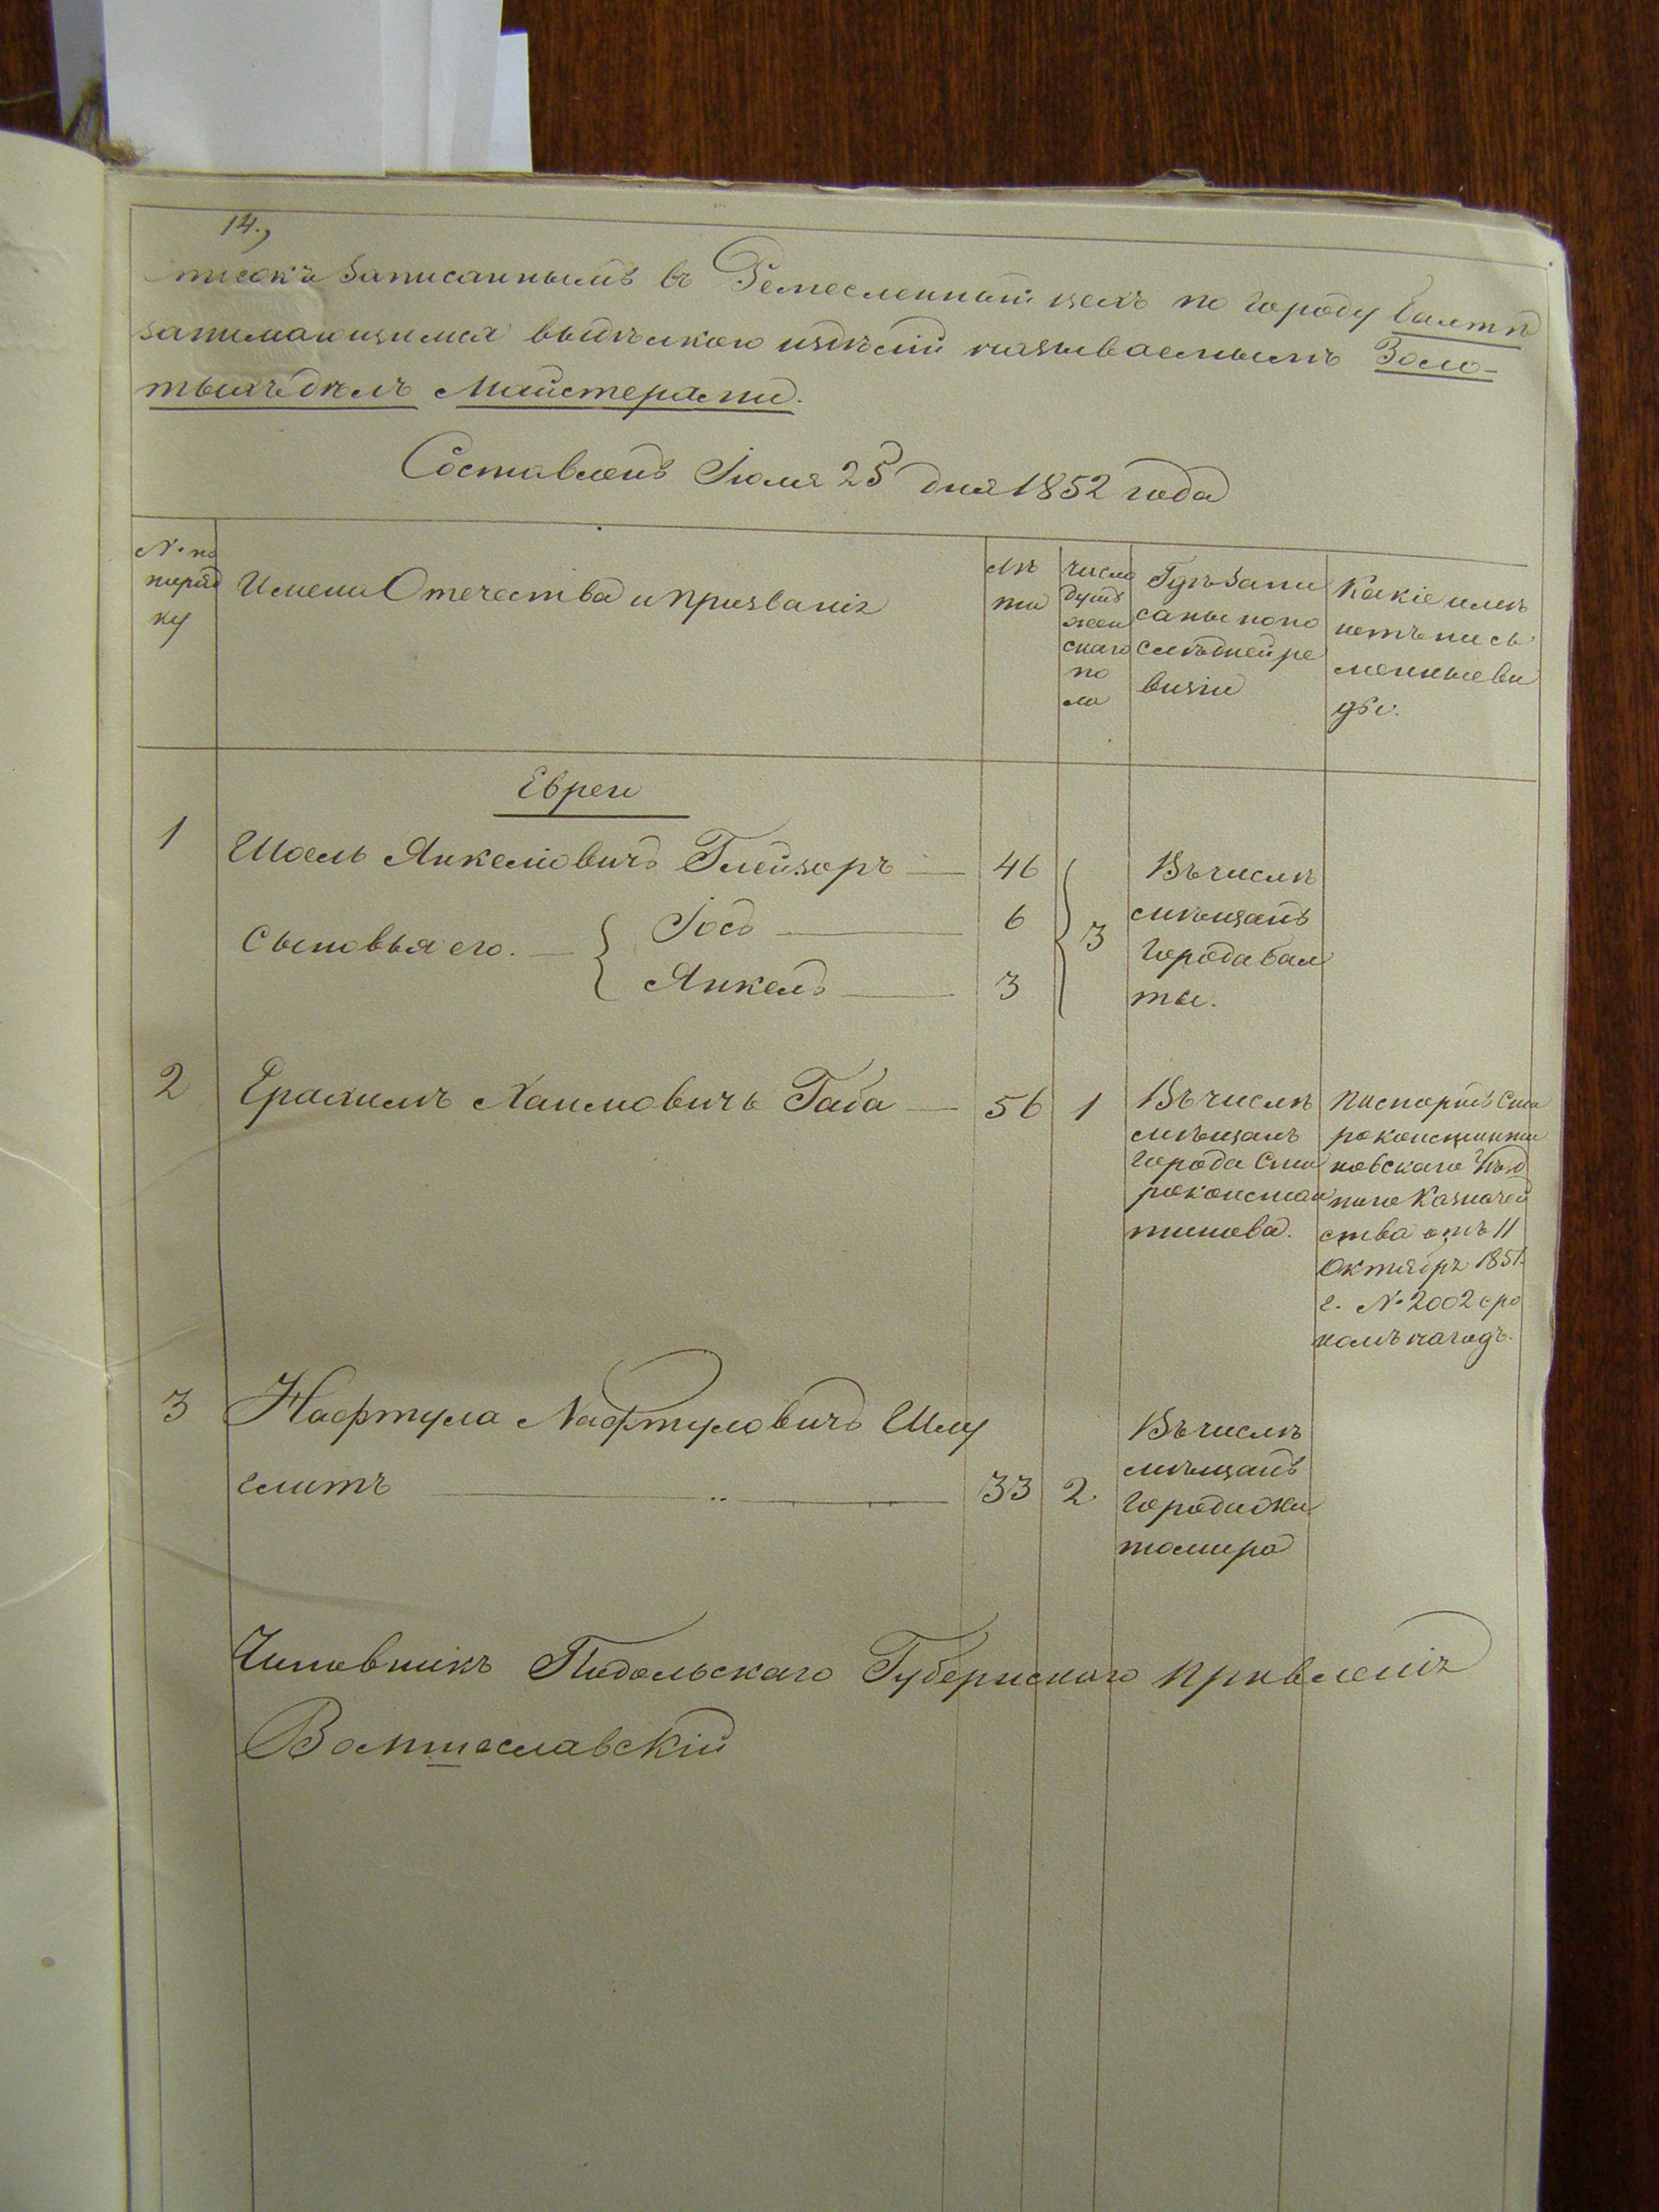 14.,
Списокъ Записаннымъ въ Ремесленный цехъ по городу Балтѣ
занимающимся выдѣлкою издѣлій называемымъ Золо-
тыхъ дѣлъ Майстерами.
Составленъ Іюля 25 дня 1852 года
№ по поряд ку
Имена Отечества и Призванія
лѣ та
число душъ жен скаго по ла
Гдѣ Запи саны по по слѣдней ре визіи
Какіе имѣ ютъ пись менные ви ды.
Евреи
1 Шоель Янкеліовичъ Глейзоръ — 46
Сыновья его. — { Іосъ — 6 } 3
Янкель — 3
Въ числѣ
мѣщанъ
города Бал
ты.
2 Ерахимъ Хаимовичъ Габа — 56 1
Въ числѣ
мѣщанъ
города Ста
роконстан
тинова.
Паспортъ Ста
роконстанти
новскаго Уѣзд
наго Казначей
ства отъ 11
Октября 1851.
г. № 2002 сро
комъ на годъ.
3 Нафтула Нафтуловичъ Шму
глитъ — 33 2
Въ числѣ
мѣщанъ
города Жи
томира
Чиновникъ Подольскаго Губернскаго Правленія